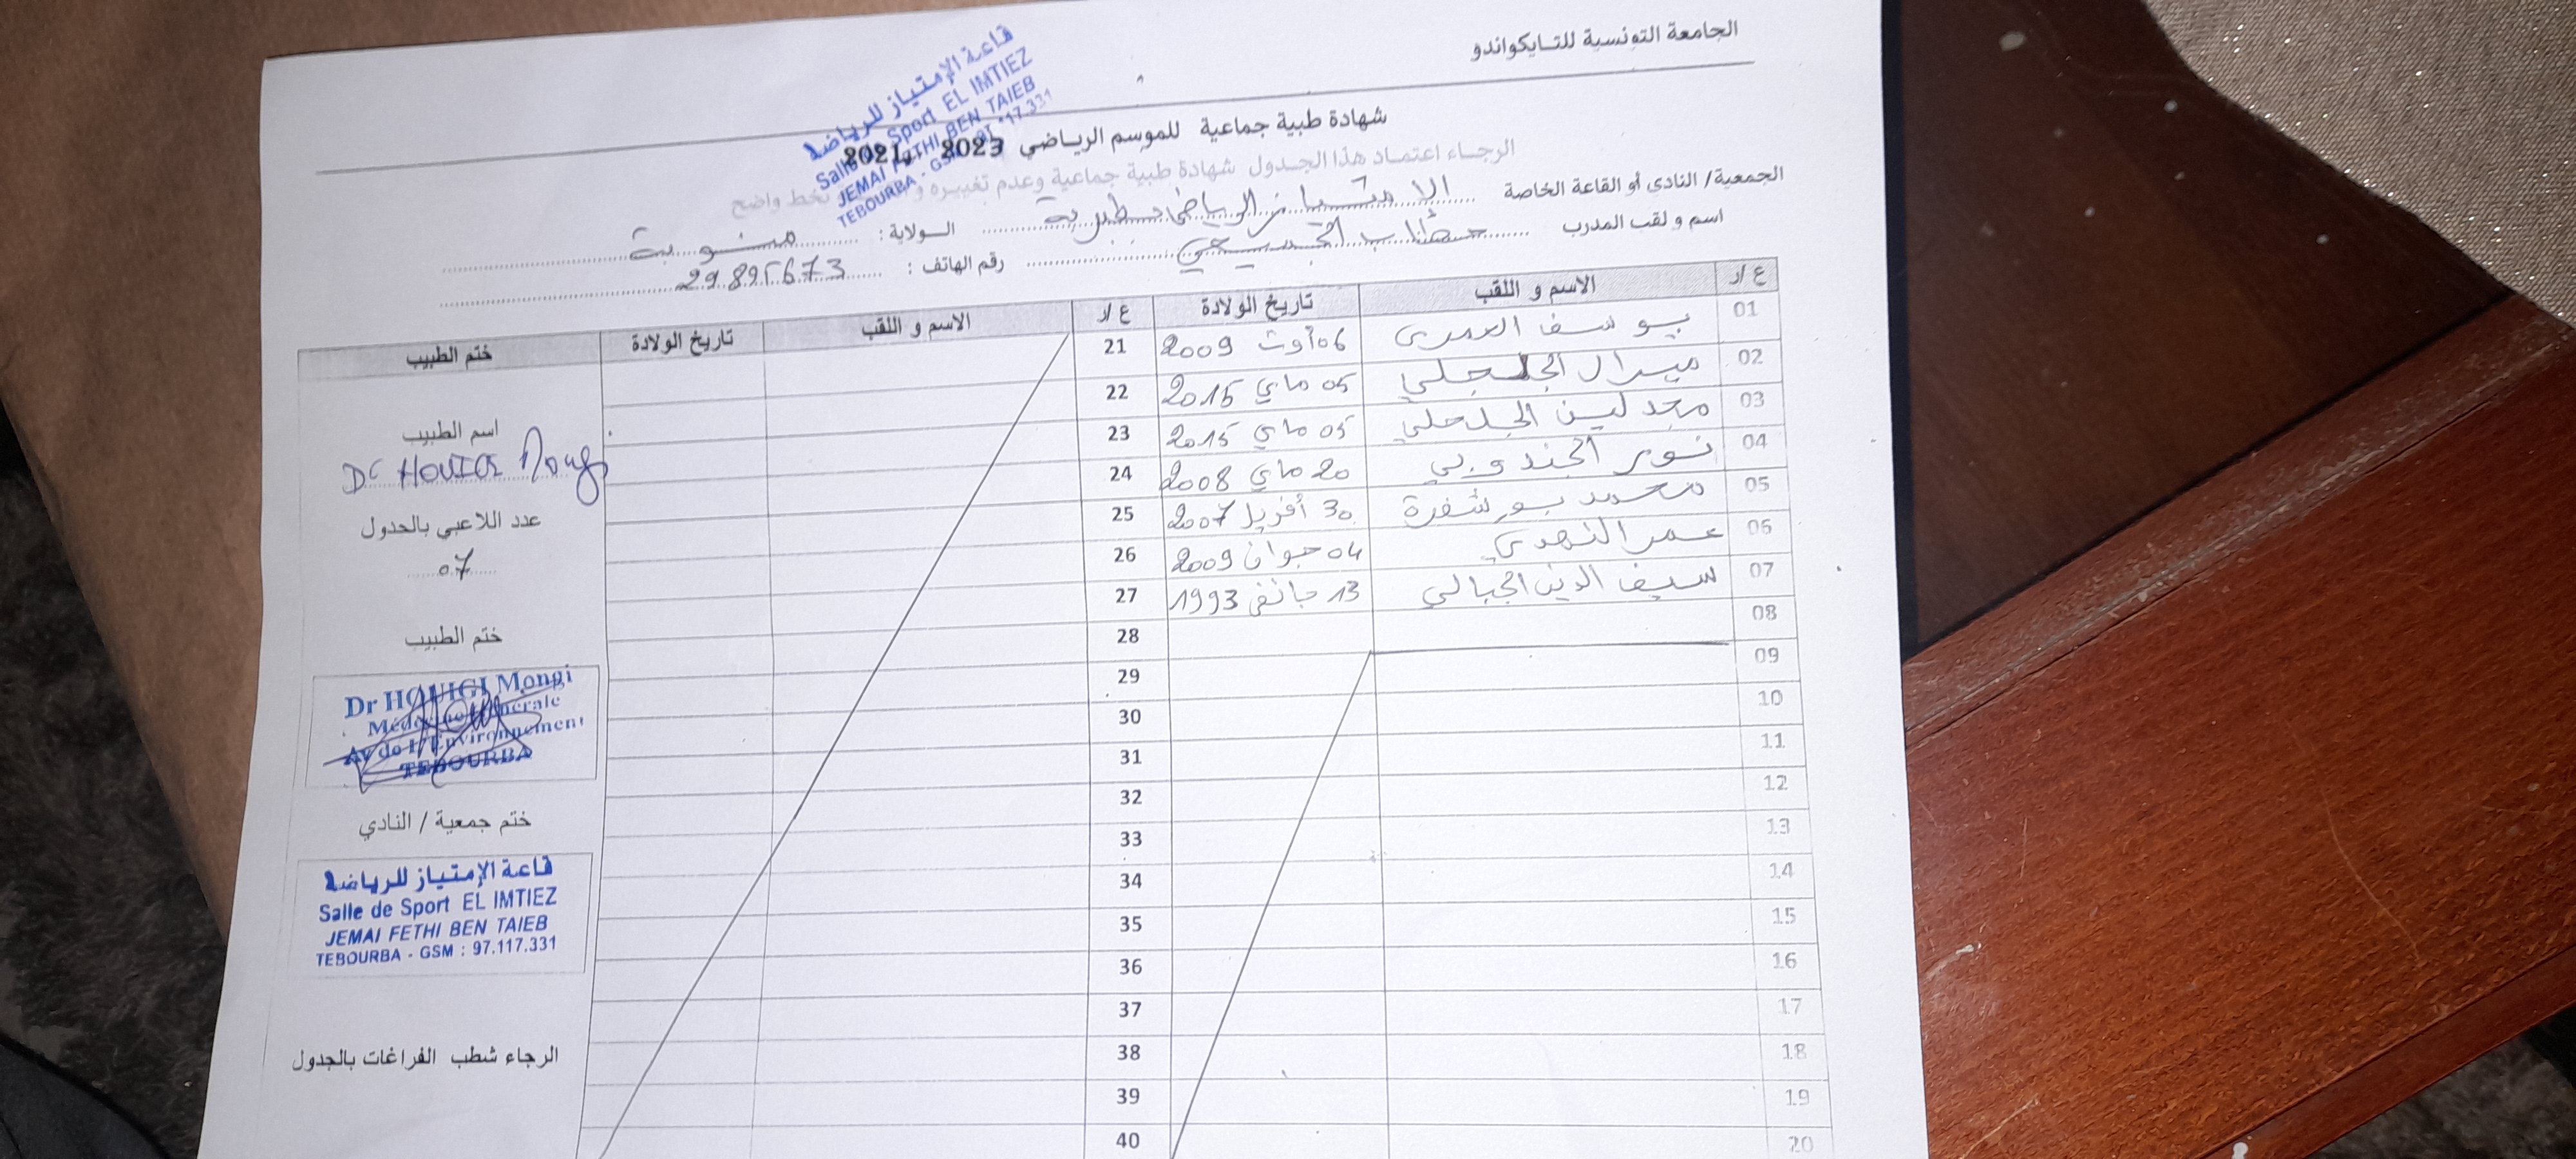 الجامعة التونسية للتـايكواندو
قاعة الإمتياز للرياضة
Salle de Sport EL IMTIEZ
JEMAI FETHI BEN TAIEB
TEBOURBA - GSM 97.117.331
شهادة طبية جماعية للموسم الرياضي 2023
الرجـاء اعتمـاد هذا الجـدول شهادة طبية جماعية وعدم تغييـره بخط واضح
الجمعية/ النادي أو القاعة الخاصة الامتياز الرياضي بطبربة الـولاية: منوبة
اسم و لقب المدرب رقم الهاتف : 29895673
ع /ر الاسم و اللقب تاريخ الولادة ع /ر الاسم و اللقب تاريخ الولادة ختم الطبيب
01 يوسف العمري 06 أوت 2009 21
02 ميرال الجلجلي 05 ماي 2015 22
03 مجدلين الجلجلي 05 ماي 2015 23
04 نور الجندوبي 20 ماي 2008 24
05 محمد بوشفرة 30 أفريل 2007 25
06 عمر النهدي 04 جوان 2009 26
07 سيف الدين الجبالي 13 جانفي 1993 27
08 28
09 29
10 30
11 31
12 32
13 33
14 34
15 35
16 36
17 37
18 38
19 39
20 40
اسم الطبيب
Dr HOUIGI Mongi
عدد اللاعبي بالجدول
07
ختم الطبيب
Dr HOUIGI Mongi
Médecine Générale
Av de l'Environnement
TEBOURBA
ختم جمعية / النادي
قاعة الإمتياز للرياضة
Salle de Sport EL IMTIEZ
JEMAI FETHI BEN TAIEB
TEBOURBA - GSM : 97.117.331
الرجاء شطب الفراغات بالجدول